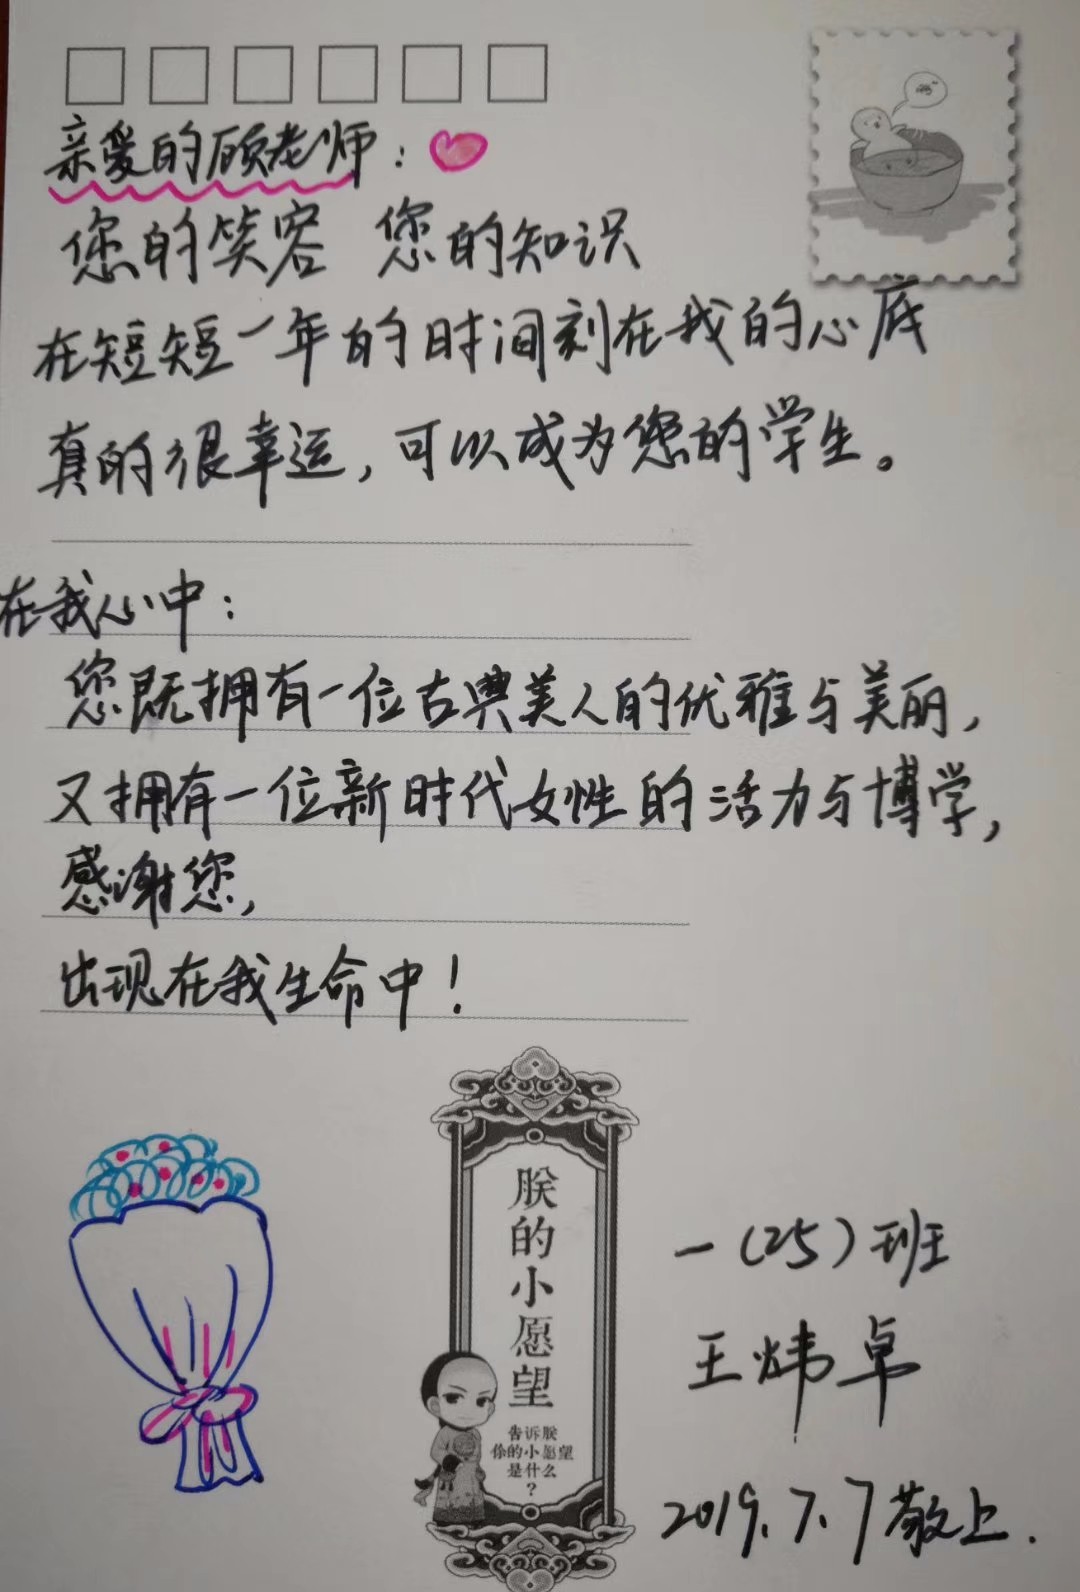 亲爱的顾老师:
您的笑容 您的知识
在短短一年的时间刻在我的心底
真的很幸运,可以成为您的学生。
在我心中:
您既拥有一位古典美人的优雅与美丽,
又拥有一位新时代女性的活力与博学,
感谢您,
出现在我生命中!
朕的小愿望
告诉朕
你的小愿望
是什么
?
一(25)班
王炜卓
2019.7.7敬上.